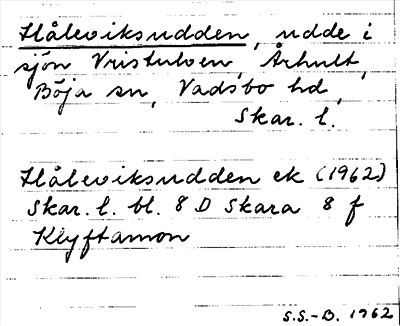 Håleviksudden, udde i
sjön Vristulven, Århult,
Böja sn, Vadsbo hd,
Skar. l.
Håleviksudden ek (1962)
Skar. l. bl. 8 D Skara 8 f
Klyftamon
S.S.-B. 1962